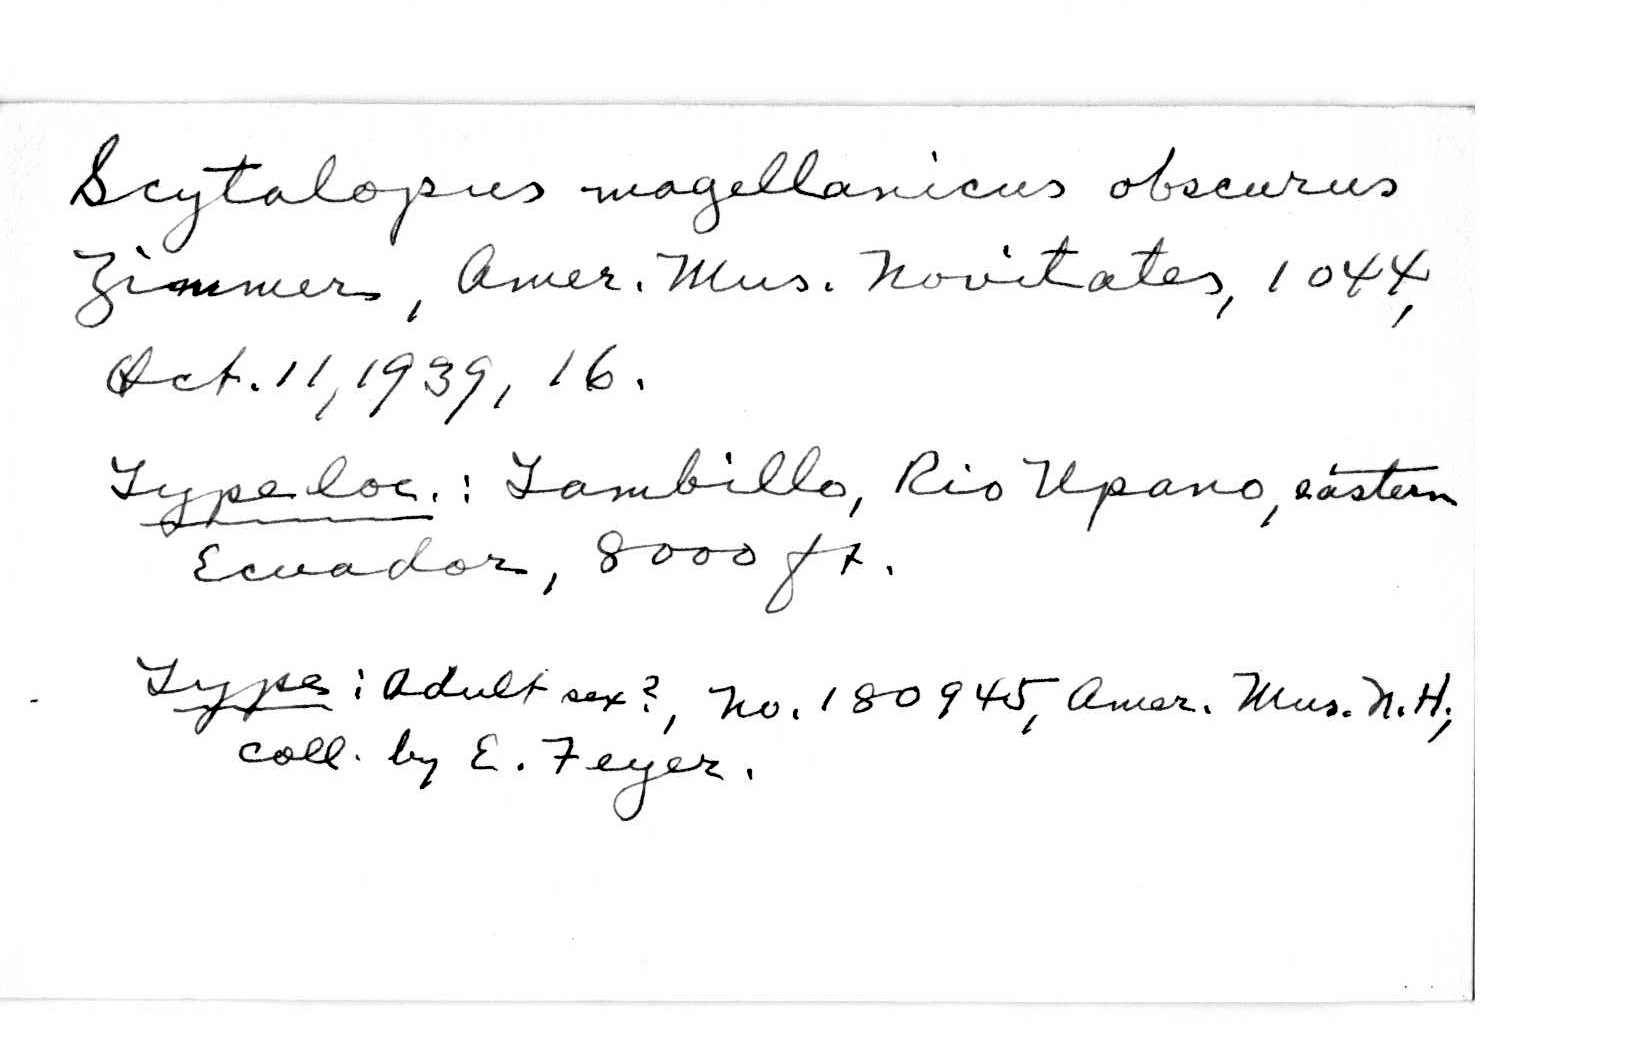 Scytalopus magellanicus obscurus
Zimmer, Amer. Mus. Novitates, 1044,
Oct. 11, 1939, 16.
Type loc.: Tambillo, Rio Upano, eastern
Ecuador, 8000 ft.
Type: Adult sex?, No. 180945, Amer. Mus. N.H.,
coll. by E. Feyer.